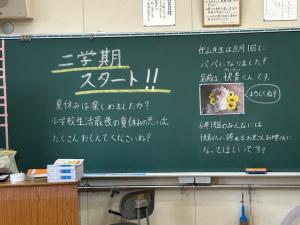 二学期
スタート!!
夏休みは楽しめましたか?
小学校生活最後の夏休みの思い出
たくさんおしえてくださいね!
先生は8月1日に
パパになりました!
名前は
くんです。
よろしくね!
6年1組のみんなには
お兄さんお姉さんに
なってほしいです!